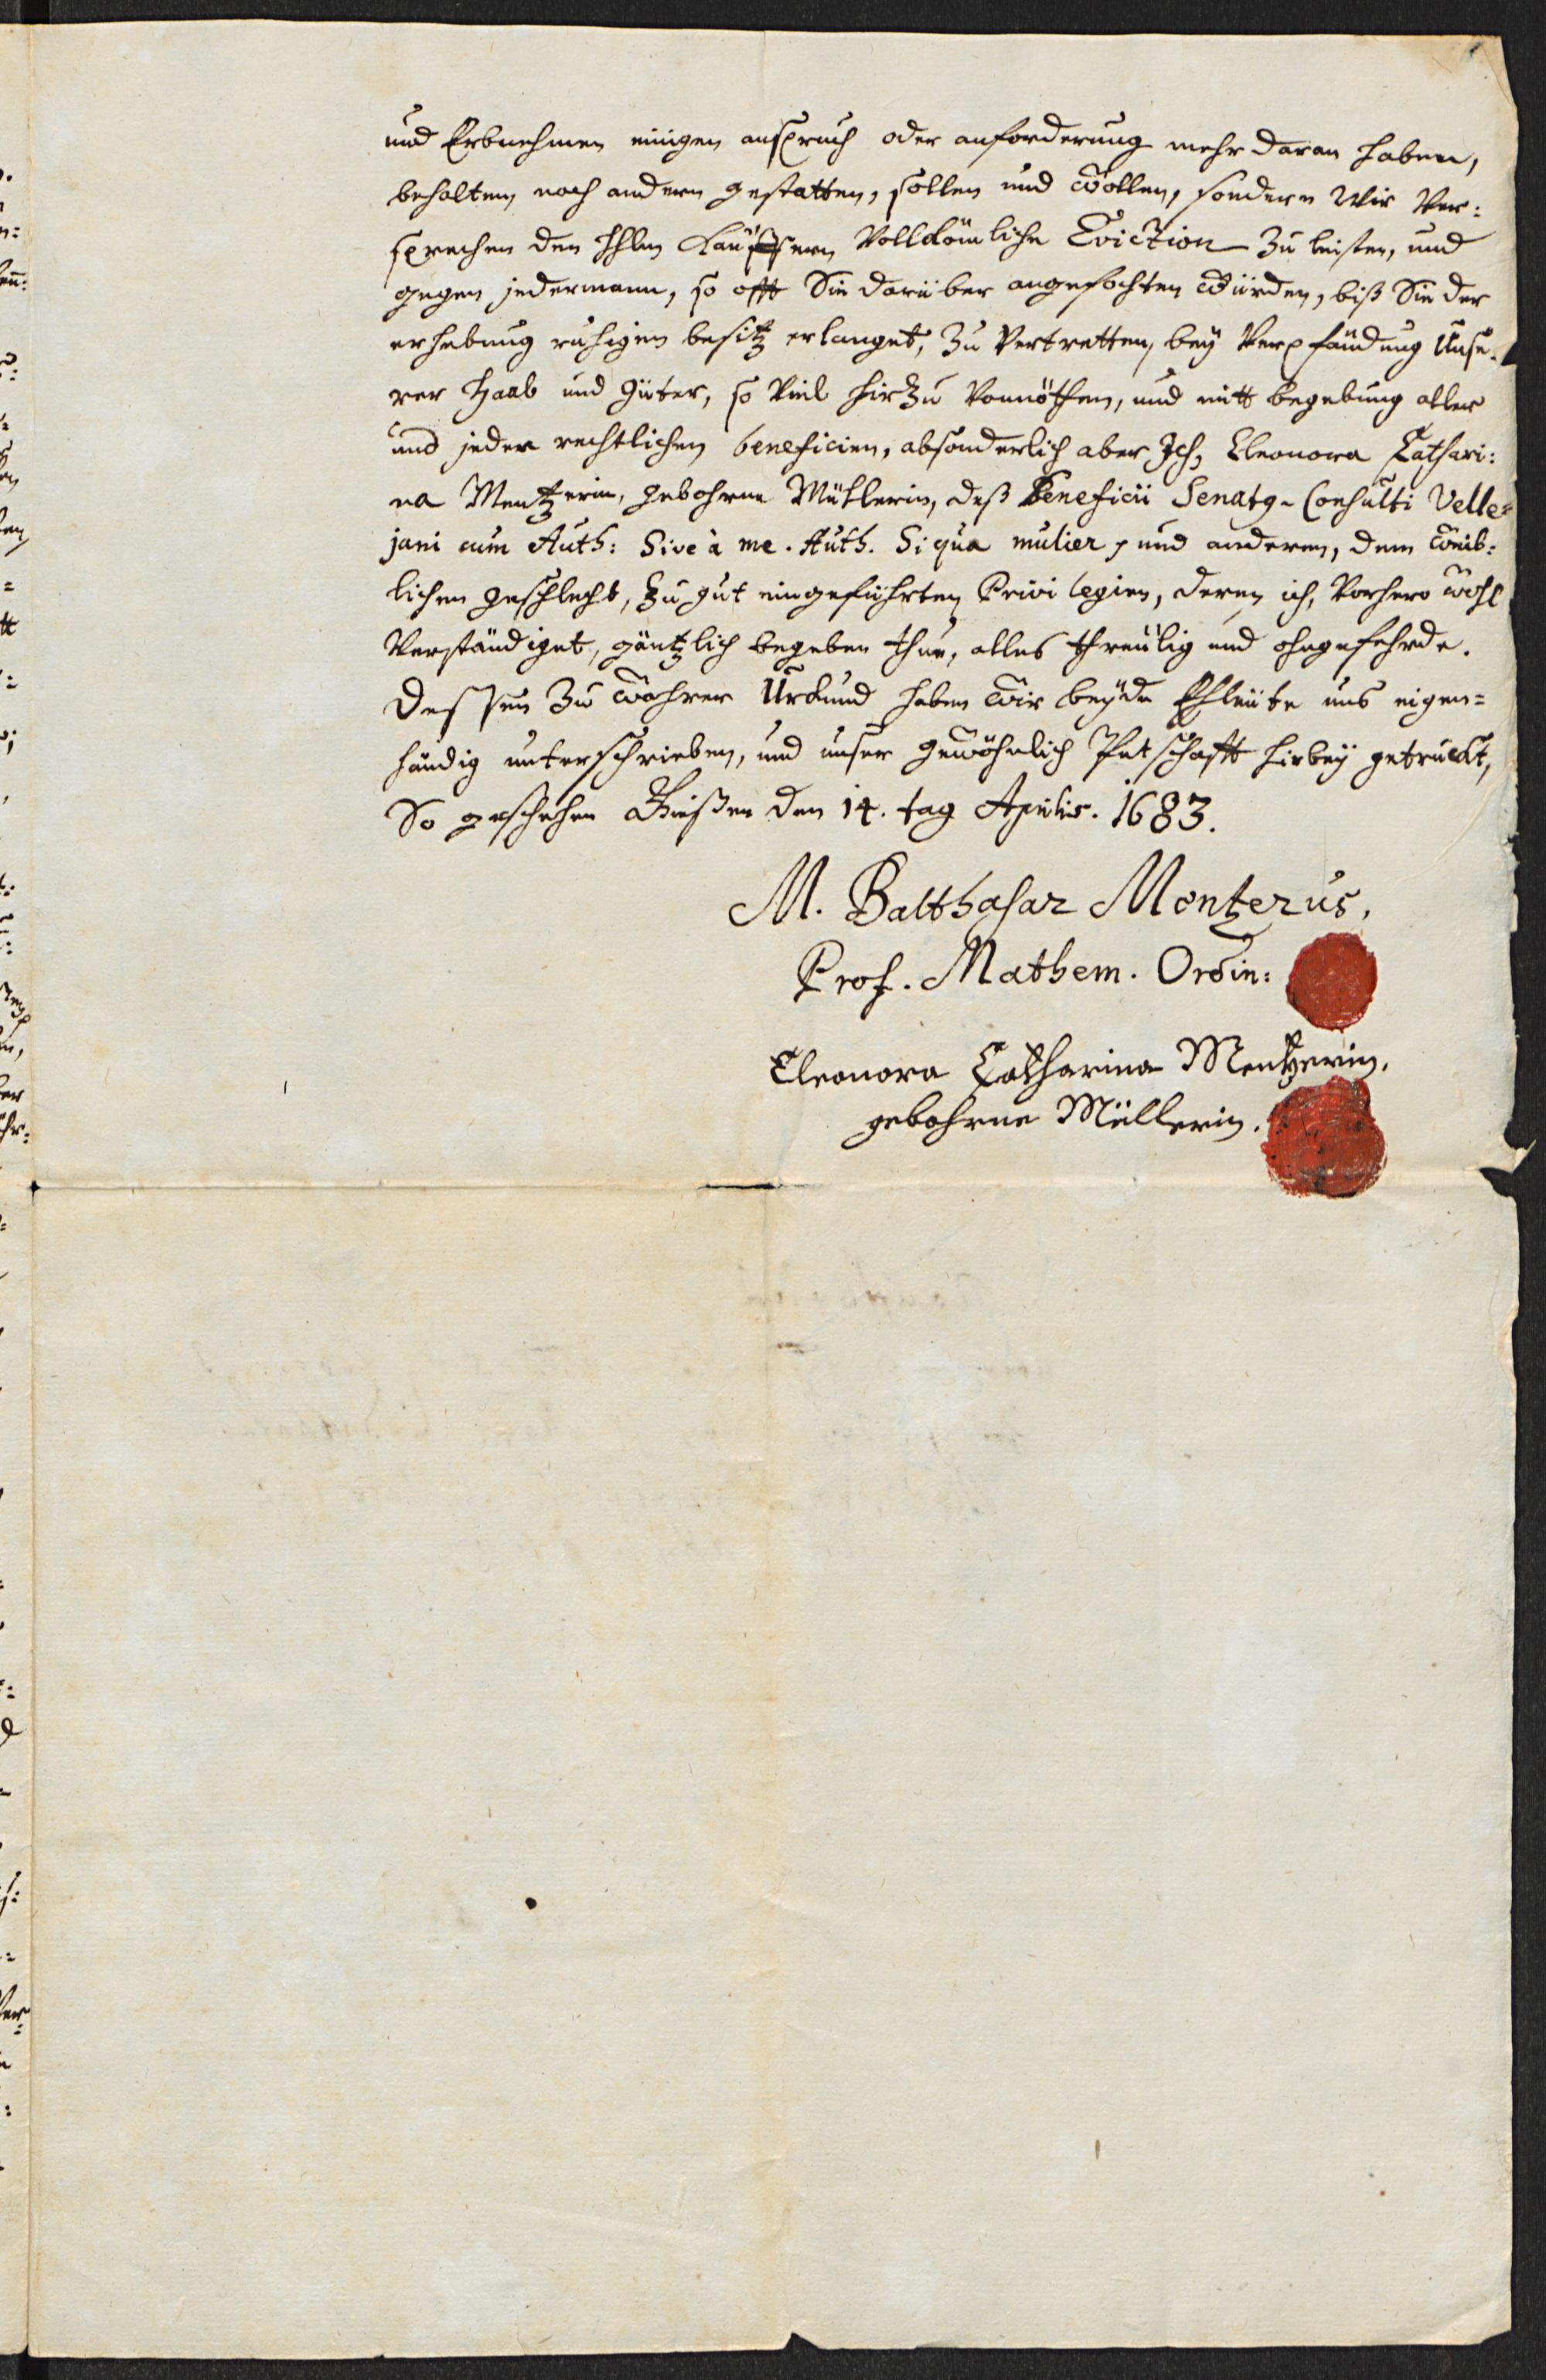 und Erbnehmen einigen anspruch oder anforderung mehr daran haben,
behalten, noch andern gestatten, sollen und wollen, sondern Wir Ver:
sprechen den Käuffern Vollkömliche Eviction zu leisten, und
gegen jedermann, so offt Sie darüber angefochten würden, biß Sie der
erhebung ruhigen besitz erlanget, zu Vertretten, bey Verpfändung Unse:
rer Haab und Güter, so Viel hirzu Vonnöthen, und mitt begebung aller
und jeder rechtlichen beneficien, absonderlich aber Jch, Eleonora Cathari:
na Mentzerin, gebohrne Müllerin, deß Beneficii Senatq-Consulti Velle=
jani cum Auth: Sive à me. Auth. Si qua mulier, und anderen, dem weib:
lichen geschlecht, zu gut eingeführten Privilegien, deren ich, Vorhero wohl
Verständiget, gäntzlich begeben thue, alles threülig und ohngefehrde.
Dessen zu wahrer Urkund haben wir beÿde Ehleüte uns eigen=
händig unterschrieben, und unser gewöhnlich Petschafft hirbeÿ getruckt,
So geschehen Giesßen den 14. tag Aprilis. 1683.
M. Balthasar Mentzerus,
Prof. Mathem. Ordin:
Eleonora Catharina Mentzerin,
gebohrne Müllerin.